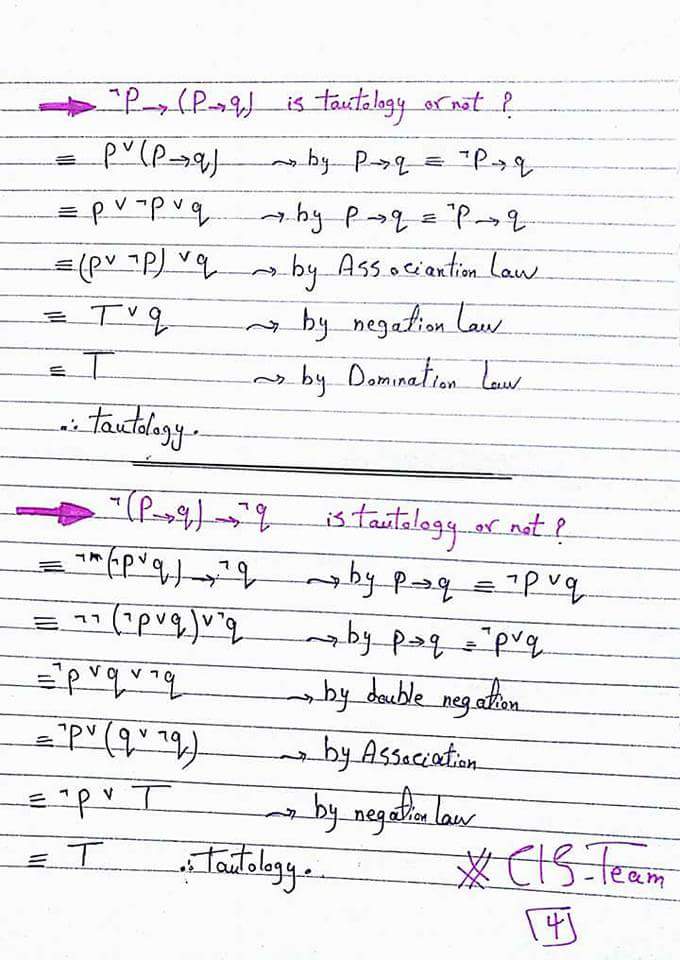 ¬P→(P→q) is tautology or not?
≡ p∨(P→q) ⇝ by P→q ≡ ¬P→q
≡ p∨¬p∨q ⇝ by P→q ≡ ¬P→q
≡(p∨¬p)∨q ⇝ by Associantion Law
≡ T∨q ⇝ by negation Law
≡ T ⇝ by Domination Law
∴ tautology.
¬(P→q)→¬q is tautology or not?
≡ ¬(¬p∨q)→¬q ⇝ by p→q ≡ ¬p∨q
≡ ¬¬(¬p∨q)∨¬q ⇝ by p→q ≡ ¬p∨q
≡¬p∨q∨¬q ⇝ by double negation
≡¬p∨(q∨¬q) ⇝ by Association
≡ ¬p∨T ⇝ by negation law
≡ T ∴ tautology.
CIS-Team
4